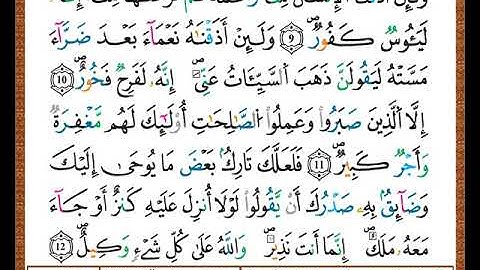 لَيَـُٔوسٌ كَفُورٌ ۝٩ وَلَئِنْ أَذَقْنَٰهُ نَعْمَآءَ بَعْدَ ضَرَّآءَ
مَسَّتْهُ لَيَقُولَنَّ ذَهَبَ ٱلسَّيِّـَٔاتُ عَنِّىٓ ۚ إِنَّهُۥ لَفَرِحٌ فَخُورٌ ۝١٠
إِلَّا ٱلَّذِينَ صَبَرُوا۟ وَعَمِلُوا۟ ٱلصَّٰلِحَٰتِ أُو۟لَٰٓئِكَ لَهُم مَّغْفِرَةٌ
وَأَجْرٌ كَبِيرٌ ۝١١ فَلَعَلَّكَ تَارِكٌۢ بَعْضَ مَا يُوحَىٰٓ إِلَيْكَ
وَضَآئِقٌۢ بِهِۦ صَدْرُكَ أَن يَقُولُوا۟ لَوْلَآ أُنزِلَ عَلَيْهِ كَنزٌ أَوْ جَآءَ
مَعَهُۥ مَلَكٌ ۚ إِنَّمَآ أَنتَ نَذِيرٌ ۚ وَٱللَّهُ عَلَىٰ كُلِّ شَىْءٍ وَكِيلٌ ۝١٢